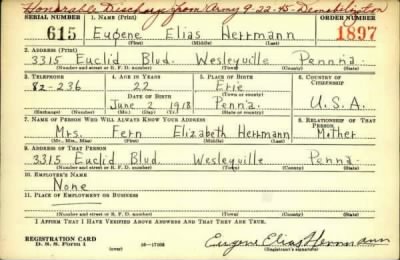 Honorable Discharge from Army 9-22-45-Demobilization
SERIAL NUMBER 1. NAME (Print) ORDER NUMBER
615 Eugene Elias Herrmann 1897
(First) (Middle) (Last)
2. ADDRESS (Print)
3315 Euclid Blvd. Wesleyville Penn'a.
(Number and street or R. F. D. number) (Town) (County) (State)
3. TELEPHONE 4. AGE IN YEARS 5. PLACE OF BIRTH 6. COUNTRY OF CITIZENSHIP
82-236 22 Erie
DATE OF BIRTH (Town or county)
June 2 1918 Penn'a. U.S.A.
(Exchange) (Number) (Mo.) (Day) (Yr.) (State or country)
7. NAME OF PERSON WHO WILL ALWAYS KNOW YOUR ADDRESS 8. RELATIONSHIP OF THAT PERSON
Mrs. Fern Elizabeth Herrmann Mother
(Mr., Mrs., Miss) (First) (Middle) (Last)
9. ADDRESS OF THAT PERSON
3315 Euclid Blvd. Wesleyville Penna.
(Number and street or R. F. D. number) (Town) (County) (State)
10. EMPLOYER'S NAME
None
11. PLACE OF EMPLOYMENT OR BUSINESS
(Number and street or R. F. D. number) (Town) (County) (State)
I AFFIRM THAT I HAVE VERIFIED ABOVE ANSWERS AND THAT THEY ARE TRUE.
REGISTRATION CARD
D. S. S. Form 1 (over) 16-17105 Eugene Elias Herrmann
(Registrant's signature)